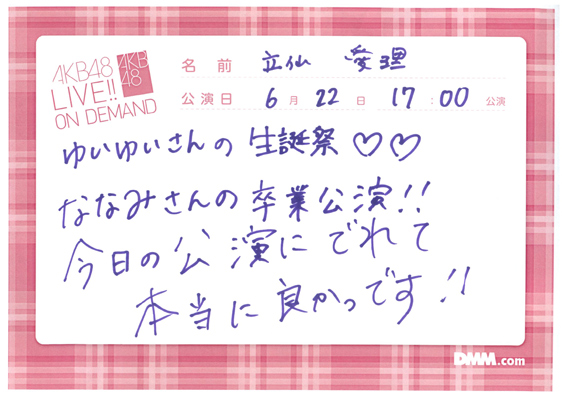 AKB48
LIVE!!
ON DEMAND
AKB
48
名前 立仙 愛理
公演日 6月22日 17:00 公演
ゆいゆいさんの生誕祭♡♡
ななみさんの卒業公演!!
今日の公演にでれて
本当に良かっです!!
DMM.com